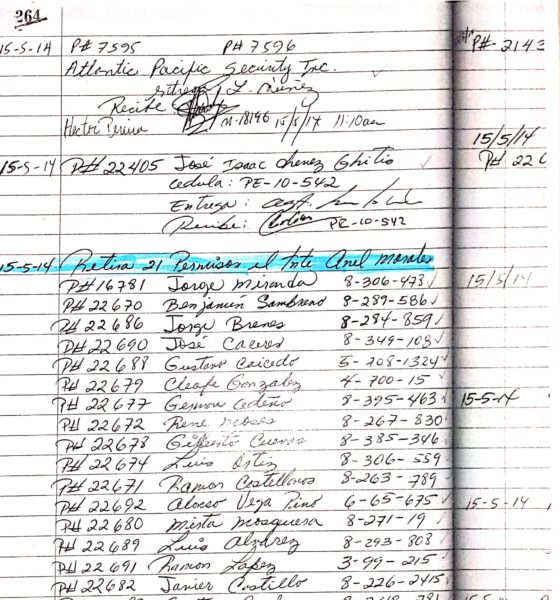 264
15-5-14 P# 7595 P# 7596
Atlantic Pacific Security Inc.
Entrega L. Nuñez
Recibe
Hector Pereira M-18196 15/5/14 11:10am
15-5-14 P# 22405 José Isaac Chenez Ghitis
cedula: PE-10-542
Entrega:
Recibe: PE-10-542
15-5-14 Retira 21 Permisos el Tnte Anel Morales
P# 16781 Jorge Miranda 8-306-473
P# 22670 Benjamín Sambrano 8-289-586
P# 22686 Jorge Brenes 8-284-859
P# 22690 José Caceres 8-349-108
P# 22688 Gustavo Caicedo 5-708-1324
P# 22679 Cleofe Gonzalez 4-700-15
P# 22677 German Cedeño 8-395-463
P# 22672 Rene Moses 8-267-830
P# 22678 Gilberto Cuevas 8-385-346
P# 22674 Luis Ortiz 8-306-559
P# 22671 Ramon Castellanos 8-263-789
P# 22692 Alonso Vega Pino 6-65-675
P# 22680 Mista Mosquera 8-271-19
P# 22689 Luis Alzárez 8-293-808
P# 22691 Ramon Lopez 3-99-215
P# 22682 Javier Castillo 8-226-2415
P#-2143
15/5/14
P# 226
15/5/14
15-5-14
15-5-14